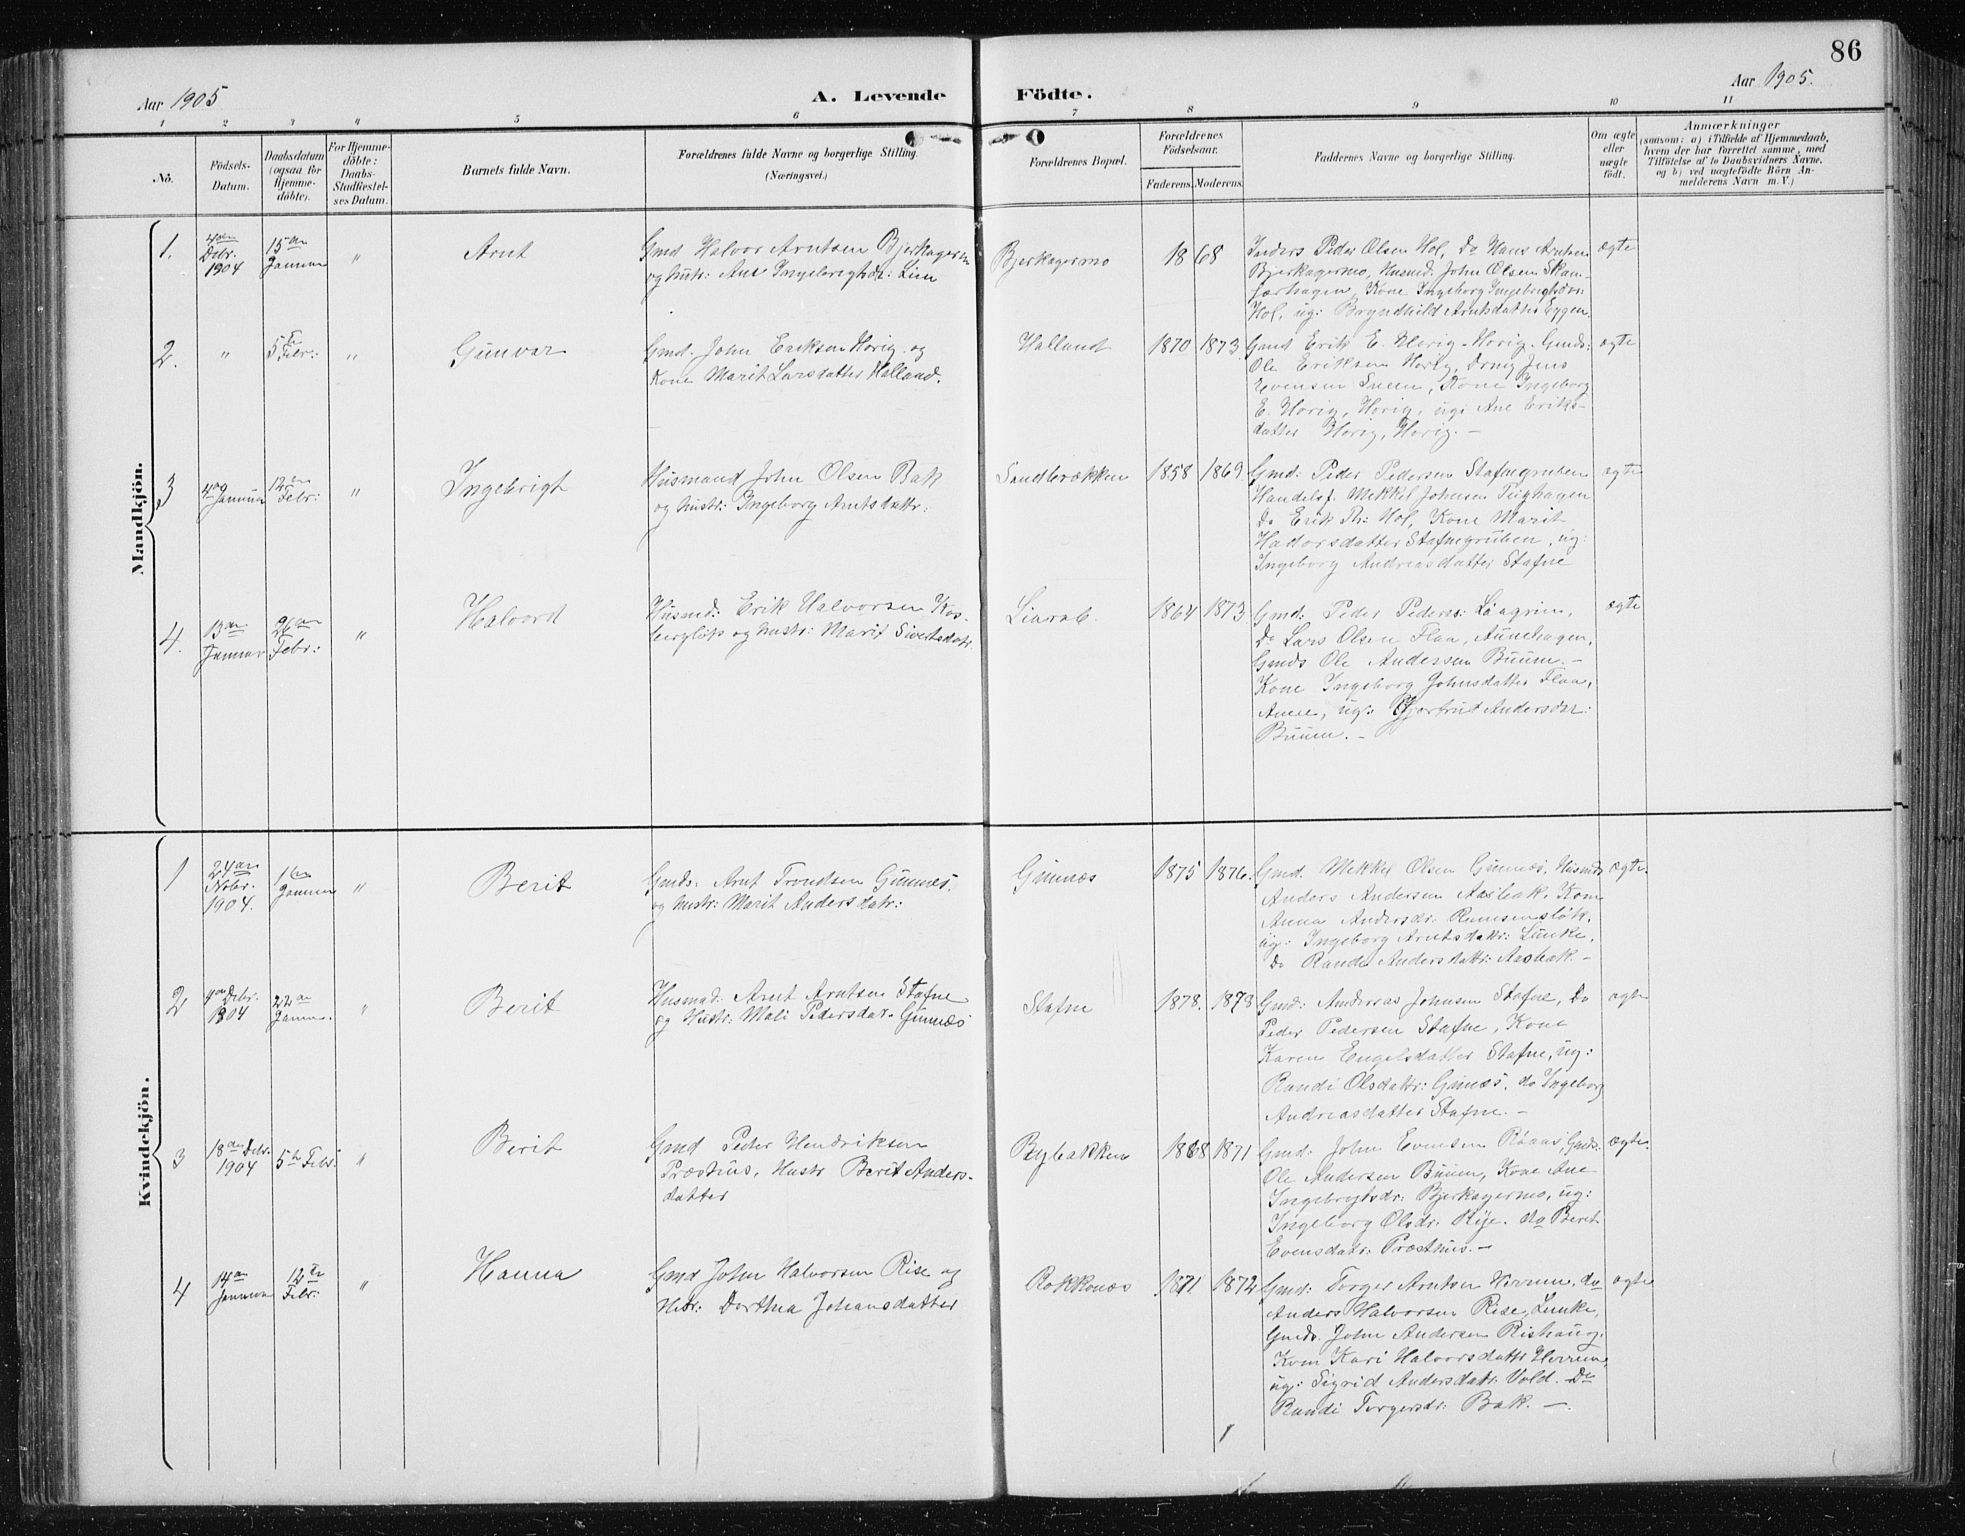 86
Aar 1905
A. Levende Födte.
Aar 1905.
1 2 3 4 5 6 7 8 9 10 11
No.
Födsels-
Datum.
Daabsdatum
(ogsaa for
Hjemme-
döbte).
For Hjemme-
döbte:
Daabs-
Stadfæstel-
ses Datum.
Barnets fulde Navn.
Forældrenes fulde Navne og borgerlige Stilling.
(Næringsvei.)
Forældrenes Bopæl.
Forældrenes
Födselsaar.
Faderens. Moderens.
Faddernes Navne og borgerlige Stilling.
Om ægte
eller
uægte
födt.
Anmærkninger
(saasom: a) i Tilfælde af Hjemmedaab,
hvem der har forrettet samme, med
Tilföielse af to Daabsvidners Navne,
og b) ved uægtefödte Börn An-
melderens Navn m. V.)
Mandkjön.
1.
4de
Debr.
1904
15de
Januar
"
Arnt
Gmd Halvor Arntsen Bjerkagermo
og hustr: Ane Ingebrigtsdt: Lien
Bjerkagermo
1868
Inders Peder Olsen Hol, Do Hans Arntsen
Bjerkagermo, Husmd. John Olsen Skam-
færhagen, Kone Ingeborg Ingebrigtsdtr:
Hol, ug: Bryndhild Arntsdatter Eggen
ægte
2.
"
5te
Febr:
"
Gunvar
Gmd. John Eriksen Horig og
Kone Marit Larsdatter Halland.
Halland
1870 1873
Gmd Erik E. Horig-Horig. Gmds:
Ole Eriksen Horig, Drng Jens
Evensen Sneen, Kone Ingeborg
E. Horig, Horig, ug: Ane Eriks-
datter Horig, Horig. –
ægte
3
4de
Januar
12te
Febr:
"
Ingebrigt
Husmand John Olsen Bak
og hustr: Ingeborg Arntsdattr:
Sandbrækken
1858 1869.
Gmd: Peder Pedersen Stafnegruben
Handelsf. Mekkel Johnsen Tughagen
Do Erik Th: Hol, Kone Marit
Hadorsdatter Stafnegruben, ug:
Ingeborg Andreasdatter Stafne
ægte
4.
13de
Januar
26de
Febr:
"
Halvord
Husmd: Erik Halvorsen Kos-
bergløk og hustr: Marit Sivertsdatr.
Liarab.
1864 1873
Gmd: Peder Peders: Løagrin,
Do Lars Olsen Flaa, Aunehagen,
Gmds Ole Andersen Buum. –
Kone Ingeborg Johnsdatter Flaa,
Aune, ug: Gjertrut Andersdtr:
Buum. –
ægte
Kvindekjön.
1
24de
Nvbr.
1904.
1te
Januar
"
Berit
Gmds: Arnt Trondsen Gunnes
og hustr: Marit Andersdatr:
Gunnæs
1875 1876.
Gmd. Mekkel Olsen Gunnæs, Husmd
Anders Andersen Aasbak, Kone
Anna Andersdr: Remsensløk,
ug: Ingeborg Arntsdattr: Lunke,
Do Randi Andersdattr: Aasbak. –
ægte
2
Debr.
1904
22de
Januar.
"
Berit
Husmd: Arnt Arntsen Stafne
og Hustr: Mali Pedersdat. Gunnæs
Stafne
1878. 1878
Gmd: Andreas Johnsen Stafne, Do
Peder Pedersen Stafne, Kone
Karen Engelsdatter Stafne, ug:
Randi Olsdattr: Gunæs, do Ingeborg
Andreasdatter Stafne. –
ægte
3
18de Debr.
1904
5te Febr.
"
Berit
Gmd Peder Hendriksen
Præsthus, Hustr Berit Anders-
datter
Bybakken
1868 1871
Gmd: John Evensen Raaas, Gmds:
Ole Andersen Buum, Kone Ane
Ingebrigtsdr: Bjerkagermo, ug:
Ingeborg Olsdr: Rise. do Beret
Evensdatr: Præsthus. –
ægte.
4
14de
Januar
12te
Febr:
"
Hanna
Gmd John Halvorsen Rise og
Hstr: Dorthea Johansdatter
Rokkonæs
1871 1872
Gmd: Torger Arntsen Herrem, do
Anders Halvorsen Rise, Lunke,
Gmds. John Andersen Rishaug,
Kone Kari Halvorsdattr Herrem,
ug: Sigrid Andersdatr. Vold. Do
Randi Torgersdr: Bak. –
ægte